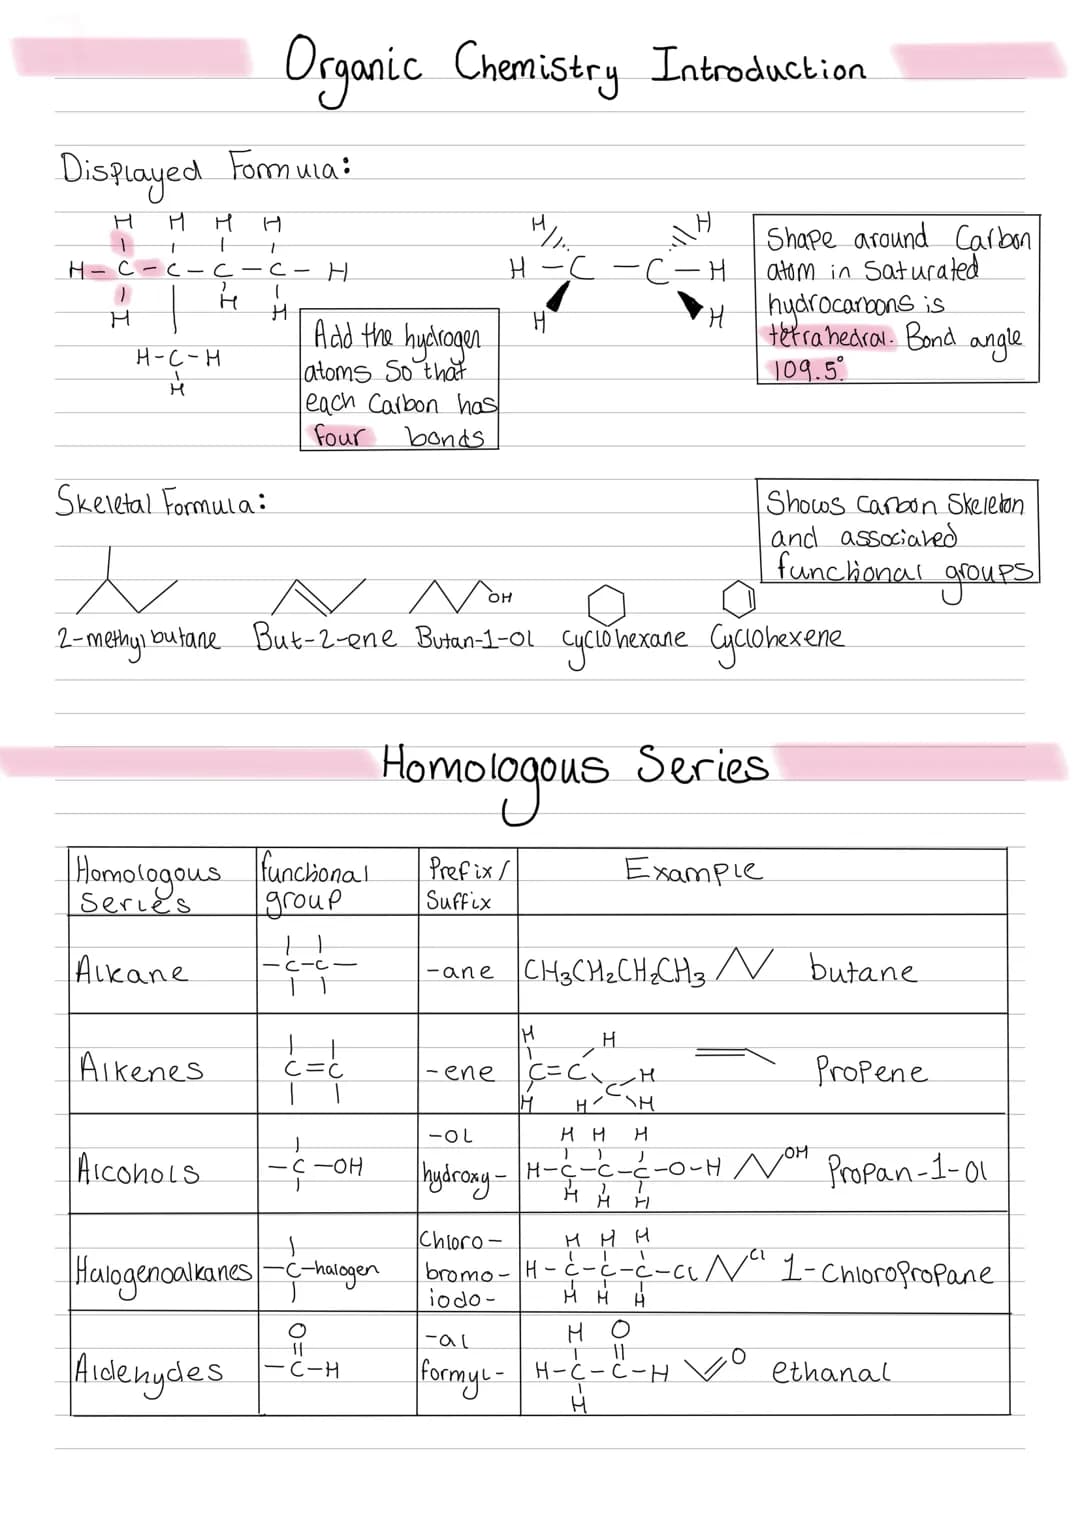 Organic Chemistry Introduction
Displayed Formula:
H H H H
H-C-C-C-C-H
H H H
H-C-H
H
Add the hydrogen
atoms so that
each Carbon has
four bonds
H H
H-C-C-H
H H
Shape around Carbon
atom in Saturated
hydrocarbons is
tetrahedral. Bond angle
109.5°
Skeletal Formula:
Shows Carbon Skeleton
and associated
functional groups
OH
2-methylbutane But-2-ene Butan-1-ol Cyclohexane Cyclohexene
Homologous Series
Homologous Series
functional group
Prefix/ Suffix
Example
Alkane
-C-C-
-ane
CH3CH2CH2CH3
butane
Alkenes
C=C
-ene
H H
C=C H
H H C H
Propene
Alcohols
-C-OH
-ol
hydroxy-
H H H
H-C-C-C-O-H
H H H
OH
Propan-1-ol
Halogenoalkanes
-C-halogen
Chloro-
bromo-
iodo-
H H H
H-C-C-C-Cl
H H H
Cl
1-Chloropropane
Aldehydes
O
-C-H
-al
formyl-
H O
H-C-C-H
H
O
ethanal